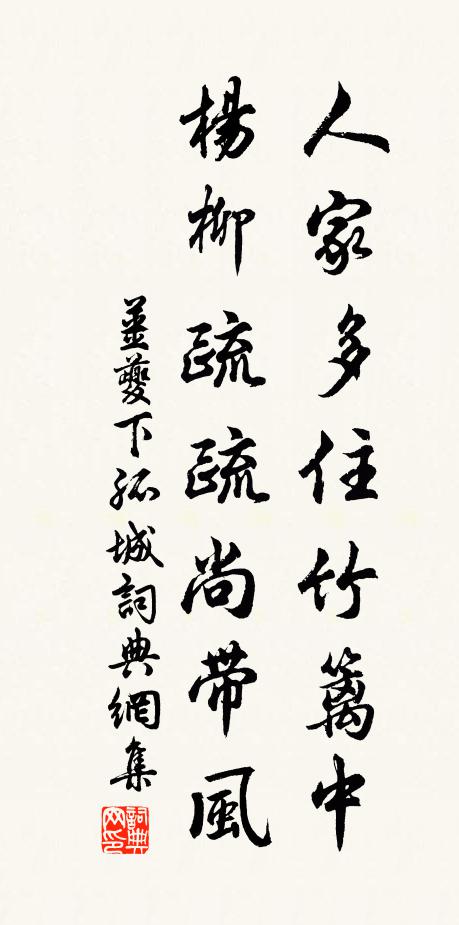 人家多住竹籬中
楊柳疏疏尚帶風
薑夔下孤城詞典網集
詞典
网印